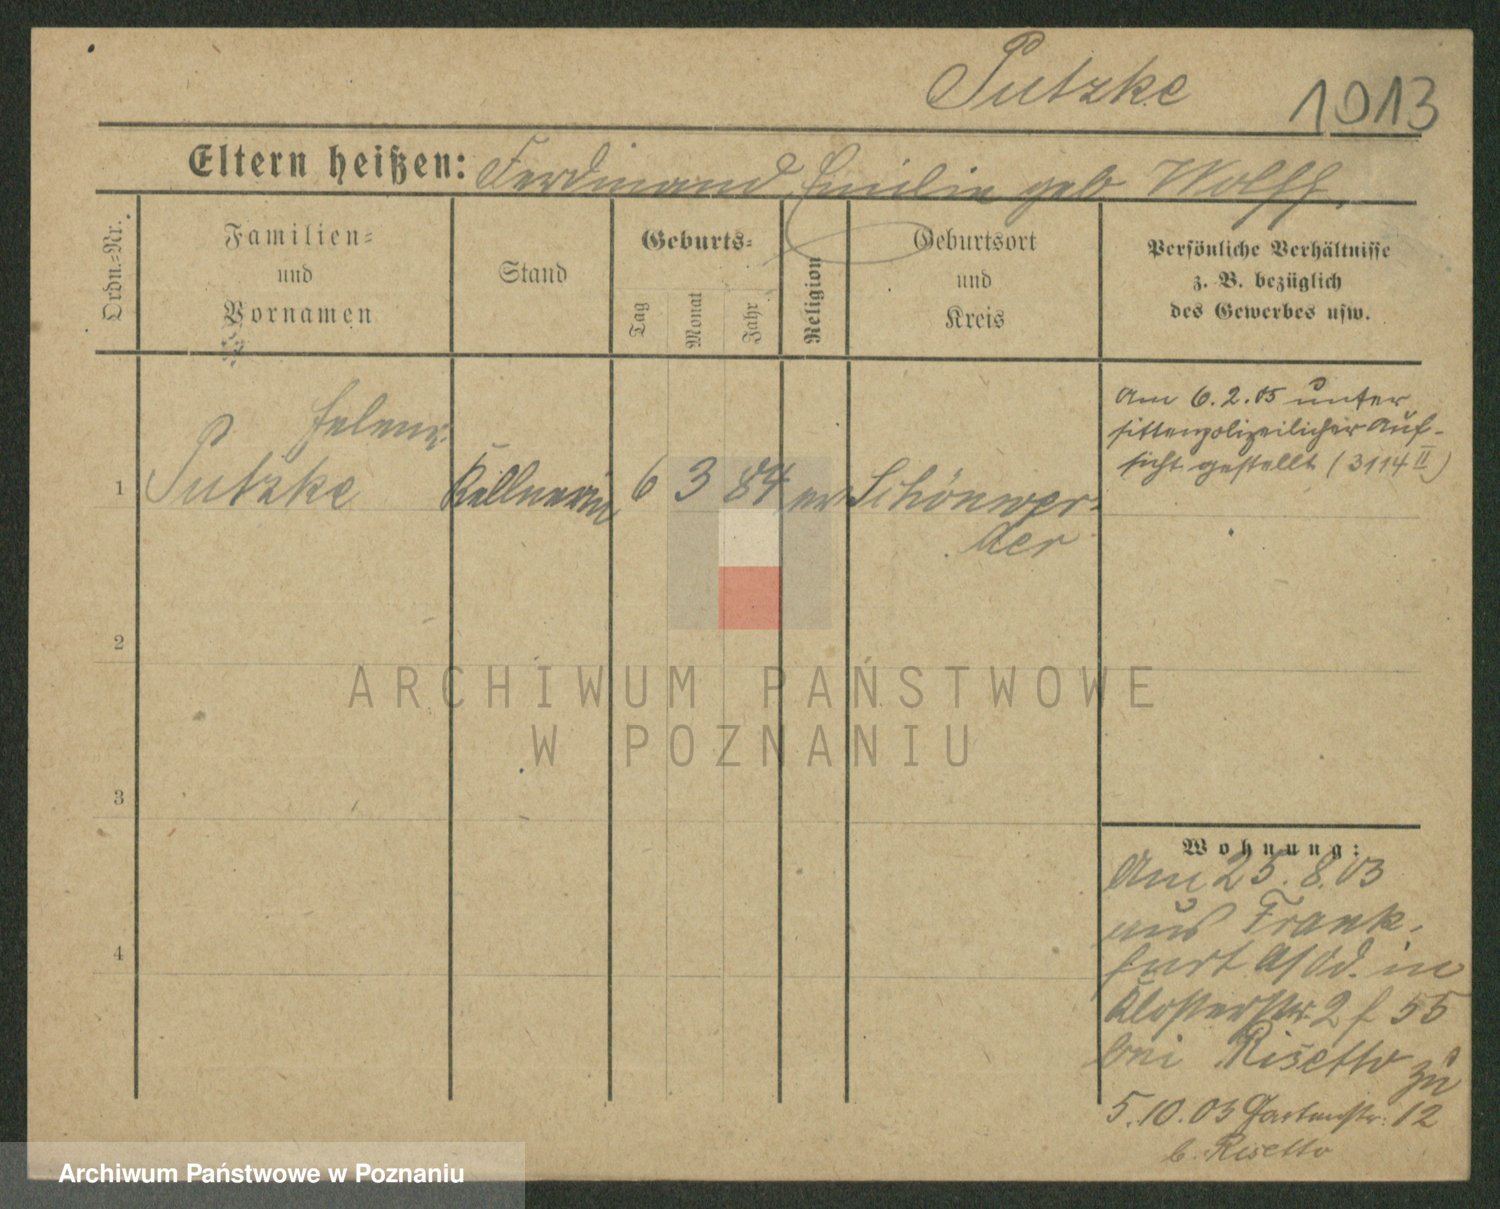 Putzke 1013
Eltern heißen: Ferdinand, Emilie geb Wolff.
Ordn.-Nr.
Familien-
und
Vornamen
Stand
Geburts-
Tag
Monat
Jahr
Religion
Geburtsort
und
Kreis
Persönliche Verhältnisse
z. B. bezüglich
des Gewerbes usw.
Helene
1 Putzke Kellnerin 6 3 84 ev Schönwer-
der
Am 6.2.05 unter
sittenpolizeilicher Auf-
sicht gestellt (3114 II)
2
3
4
Wohnung:
Am 25.8.03
aus Frank-
furt A/Od. in
Klosterstr. 2 55
bei Risetto zu
5.10.03 Gartenstr. 12
b. Risetto
ARCHIWUM PAŃSTWOWE
W POZNANIU
Archiwum Państwowe w Poznaniu